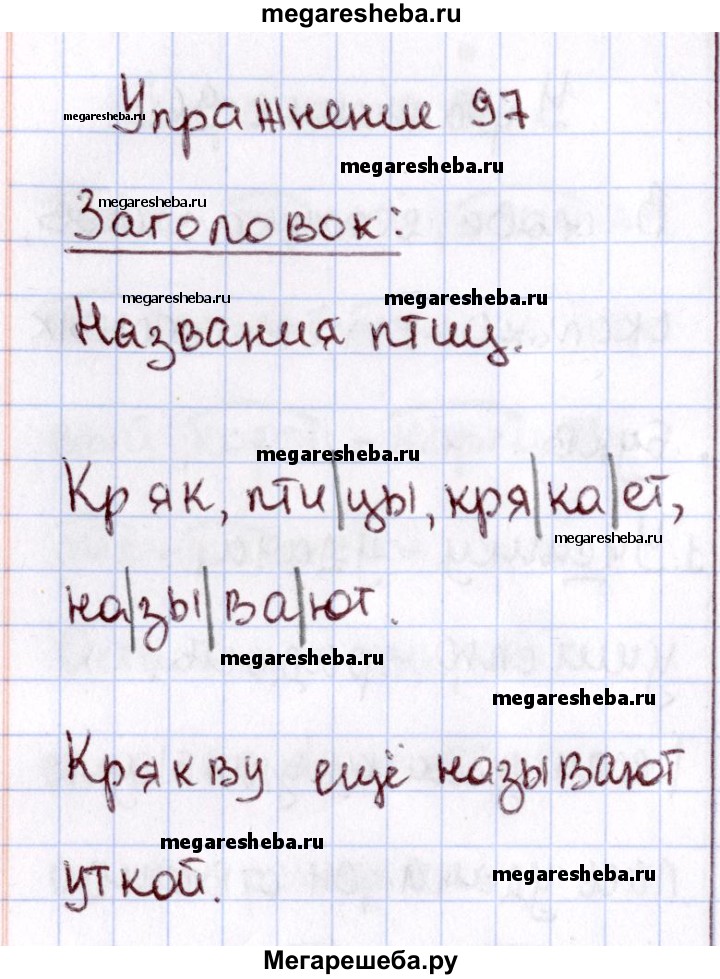 megaresheba.ru
Упражнение 97
megaresheba.ru
megaresheba.ru
megaresheba.ru
Заголовок:
megaresheba.ru
megaresheba.ru
Названия птиц.
megaresheba.ru
Кряк, пти|цы, кря|ка|ет,
megaresheba.ru
на|зы|ва|ют.
megaresheba.ru
megaresheba.ru
Крякву ещё называют
megaresheba.ru
уткой.
megaresheba.ru
Мегарешеба.ру